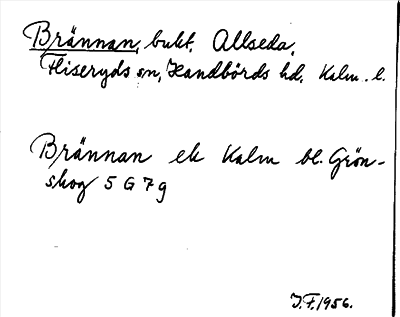 Brännan, bukt, Allseda,
Fliseryds sn, Handbörds hd. Kalm. l.
Brännan ek Kalm bl. Grön-
skog 5 G 7 g
J.F. 1956.